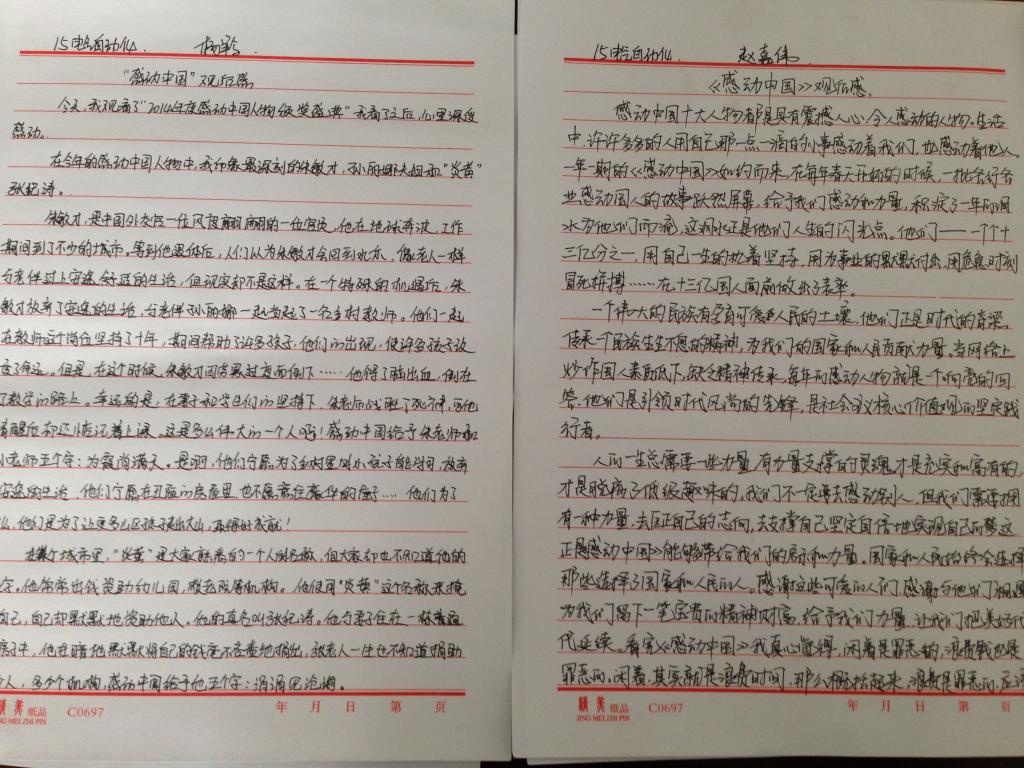 15电气自动化. 杨玲.
“感动中国”观后感
今天,我观看了“2014年度感动中国人物颁奖盛典”我看了之后,心里深受
感动.
在今年的感动中国人物中,我印象最深刻的朱敏才,孙丽娜夫妇和“炎黄”
张纪清。
朱敏才,是中国外交官一位风度翩翩的一位官员,他在地球奔波,工作
期间到了不少的城市,等到他退休后,人们以为朱敏才会回到北京,像老人一样
与老伴过上安逸舒适的生活,但现实却不是这样。在一个特殊的机遇后,朱
敏才放弃了安逸的生活,与老伴孙丽娜一起当起了一名乡村教师。他们一起
在教师这个岗位坚持了十年,期间帮助了许多孩子,他们的出现,使许多孩子改
变了命运。但是,在这个时候,朱敏才因劳累过度而倒下……他得了脑出血,倒在
了教学的路上。幸运的是,在妻子和学生们的坚持下,朱老师战胜了死神,可他
醒后却还惦记着上课。这是多么伟大的一个人吗!感动中国给予朱老师和
孙老师五个字:为霞尚满天。是啊,他们宁愿为了乡村里的小孩子能学习,放弃
安逸的生活,他们宁愿在丑陋的房屋里,也不愿意住豪华的房子……他们为了
么,他们是为了让更多山区孩子走出大山,取得好成就!
在某个城市里,“炎黄”是大家熟悉的一个人的名称,但大家却也不知道他的
字。他常常出钱资助幼儿园,敬老院等机构。他使用“炎黄”这个名称来掩
自己,自己却默默地资助他人。他的真名叫张纪清。他与妻子住在一栋普通
房子中,他在暗地默默将自己的钱毫不吝啬地捐出,张老人一生也不知道捐助
人,多少个机构,感动中国给予他五个字:涓滴见沧海。
精美纸品 JING MEI ZHI PIN C0697 年 月 日 第 页
15电气自动化 赵嘉伟
《感动中国》观后感.
感动中国十大人物都是具有震撼人心令人感动的人物。生活
中,许许多多的人用自己那一点一滴的小事感动着我们,也感动着他人。
一年一期的《感动中国》如约而来,在每年春天开始的时候,一批各行各
业感动国人的故事跃然屏幕,给予我们感动和力量,积淀了一年的泪
水为他们而流,这泪水正是他们人生的闪光点。他们——一个十
三亿分之一,用自己一生的执着坚持,用为事业的默默付出,用危急时刻
冒死拼搏……在十三亿国人面前做出了表率。
一个伟大的民族有孕育可爱人民的土壤,他们正是时代的脊梁,
传承一个民族生生不息的精神,为我们的国家和人民贡献力量。当网络上
炒作国人素质低下,缺乏精神传承,每年的感动人物就是一个响亮的回
答,他们是引领时代风尚的先锋,是社会主义核心价值观的坚定践
行者。
人的一生总需要一些力量,有力量支撑的灵魂,才是充实和富有的,
才是脱离了低级趣味的。我们不一定要去感动别人,但我们需要拥
有一种力量,去匡正自己的志向,去支撑自己坚定自信地实现自己的梦,这
正是《感动中国》能够带给我们的启示和力量。国家和人民始终会选择
那些选择了国家和人民的人。感谢这些可爱的人们,感谢与他们相遇
为我们留下一笔宝贵的精神财富,给予我们力量,让我们把美好代
代延续。看完《感动中国》我真心觉得,闲着是罪恶的,浪费钱也是
罪恶的,闲着,其实就是浪费时间,那么概括起来,浪费是罪恶的,应该
精美纸品 JING MEI ZHI PIN C0697 年 月 日 第 页